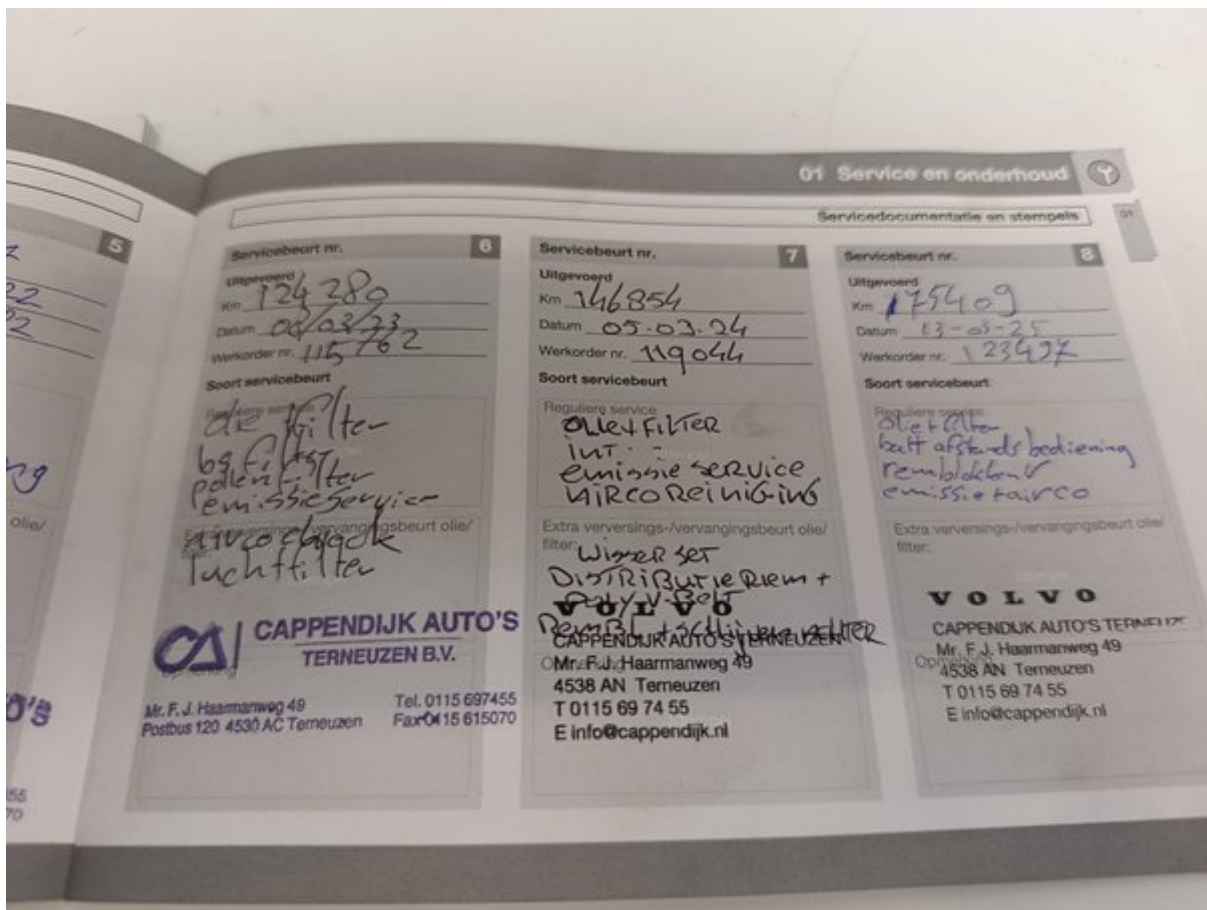 01 Service en onderhoud
Servicedocumentatie en stempels
01
5
22
22
ng
olie/
O'S
55
70
Servicebeurt nr. 6
Uitgevoerd
Km 124280
Datum 06/03/23
Werkorder nr. 115762
Soort servicebeurt
Reguliere service
olie filter
polenfilter
emissieservice
Extra verversings-/vervangingsbeurt olie/
airco check
luchtfilter
CA CAPPENDIJK AUTO'S
TERNEUZEN B.V.
Opmerking
Mr. F. J. Haarmanweg 49 Tel. 0115 697455
Postbus 120 4530 AC Terneuzen Fax 0115 615070
Servicebeurt nr. 7
Uitgevoerd
Km 146854
Datum 05-03-24
Werkorder nr. 119044
Soort servicebeurt
Reguliere service
OLIE+FILTER
INT
emissie SERVICE
AIRCO REINIGING
Extra verversings-/vervangingsbeurt olie/
filter:
WISSER SET
DISTRIBUTIE RIEM +
POLY V-BELT
VOLVO
REMBL + SCHIJVEN ACHTER
CAPPENDIJK AUTO'S TERNEUZEN
Mr. F.J. Haarmanweg 49
4538 AN Terneuzen
T 0115 69 74 55
E info@cappendijk.nl
Servicebeurt nr. 8
Uitgevoerd
Km 175409
Datum 13-03-25
Werkorder nr. 123497
Soort servicebeurt
Reguliere service
olie+filter
batt afstandsbediening
remblokken V
emissie+airco
Extra verversings-/vervangingsbeurt olie/
filter:
VOLVO
CAPPENDIJK AUTO'S TERNEUZE
Mr. F. J. Haarmanweg 49
Opmerking
4538 AN Terneuzen
T 0115 69 74 55
E info@cappendijk.nl